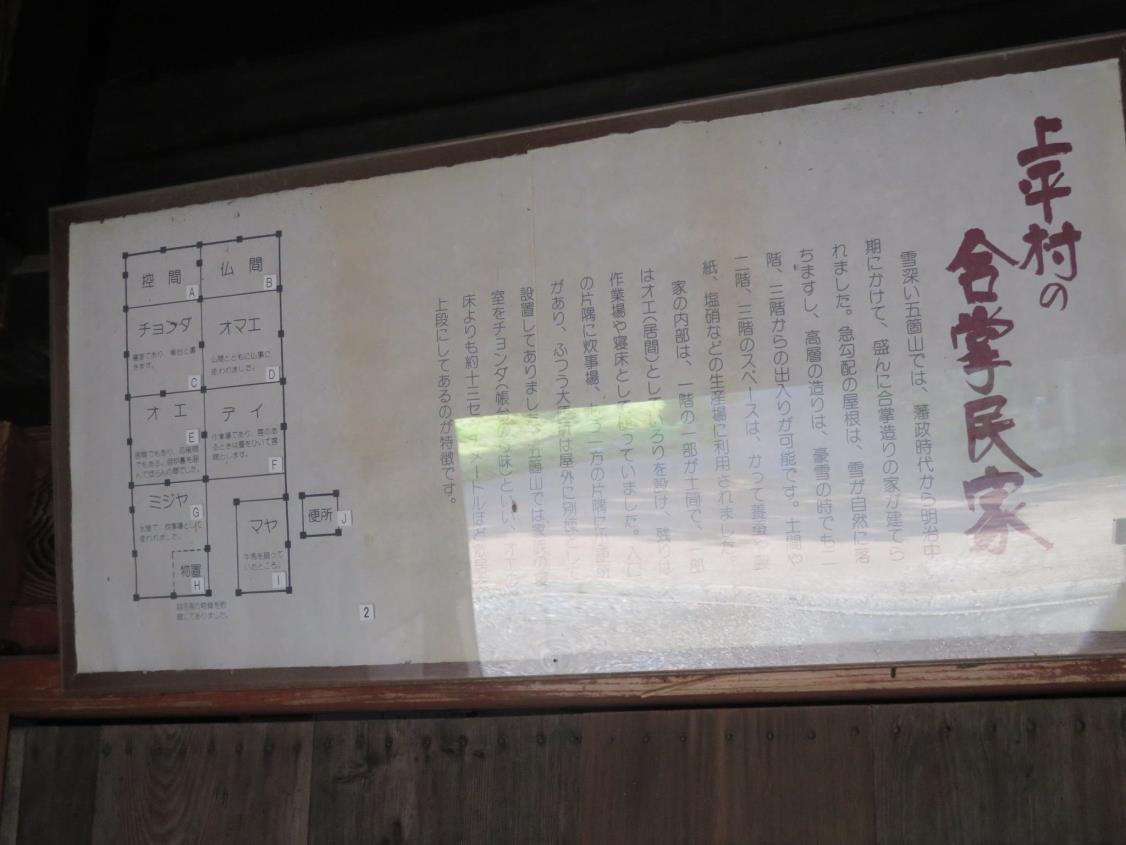 上平村の
合掌民家
雪深い五箇山では、藩政時代から明治中
期にかけて、盛んに合掌造りの家が建てら
れました。急勾配の屋根は、雪が自然に落
ちますし、高層の造りは、豪雪の時でも二
階、三階からの出入りが可能です。土間や
二階、三階のスペースは、かつて養蚕や
紙、塩硝などの生産場に利用されました
家の内部は、一階の一部が土間で、一部
はオエ(居間)としていろりを設け、残りは
作業場や寝床として使っていました。入口
の片隅に炊事場、もう一方の片隅に
があり、ふつう大便所は屋外に別棟として
設置してありました。五箇山では家長の寝
室をチョンダ(帳台の意味)といい、オエの
床よりも約十三センチメートルほど敷居を
上段にしてあるのが特徴です。
控間
A
仏間
B
チョンダ
寝室であり、帳台と書
きます。
C
オマエ
仏間とともに仏事に
使われました。
D
オエ
E
居間でもあり、応接間
でもある。
デイ
作業場であり、客のあ
るときは畳をひいて客
間とします。
F
ミジヤ
G
水屋で、炊事場として
使われました。
物置
H
マヤ
牛馬を飼って
いたところ。
I
便所
J
蔵してありました。
2